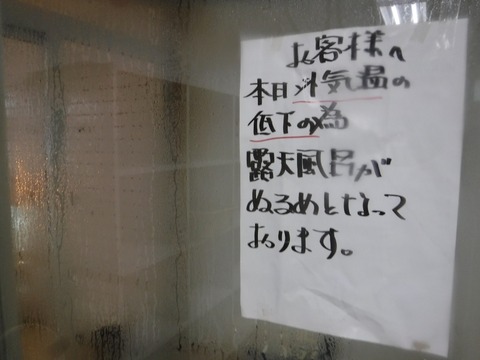 お客様へ
本日外気温の
低下の為
露天風呂が
ぬるめとなって
おります。